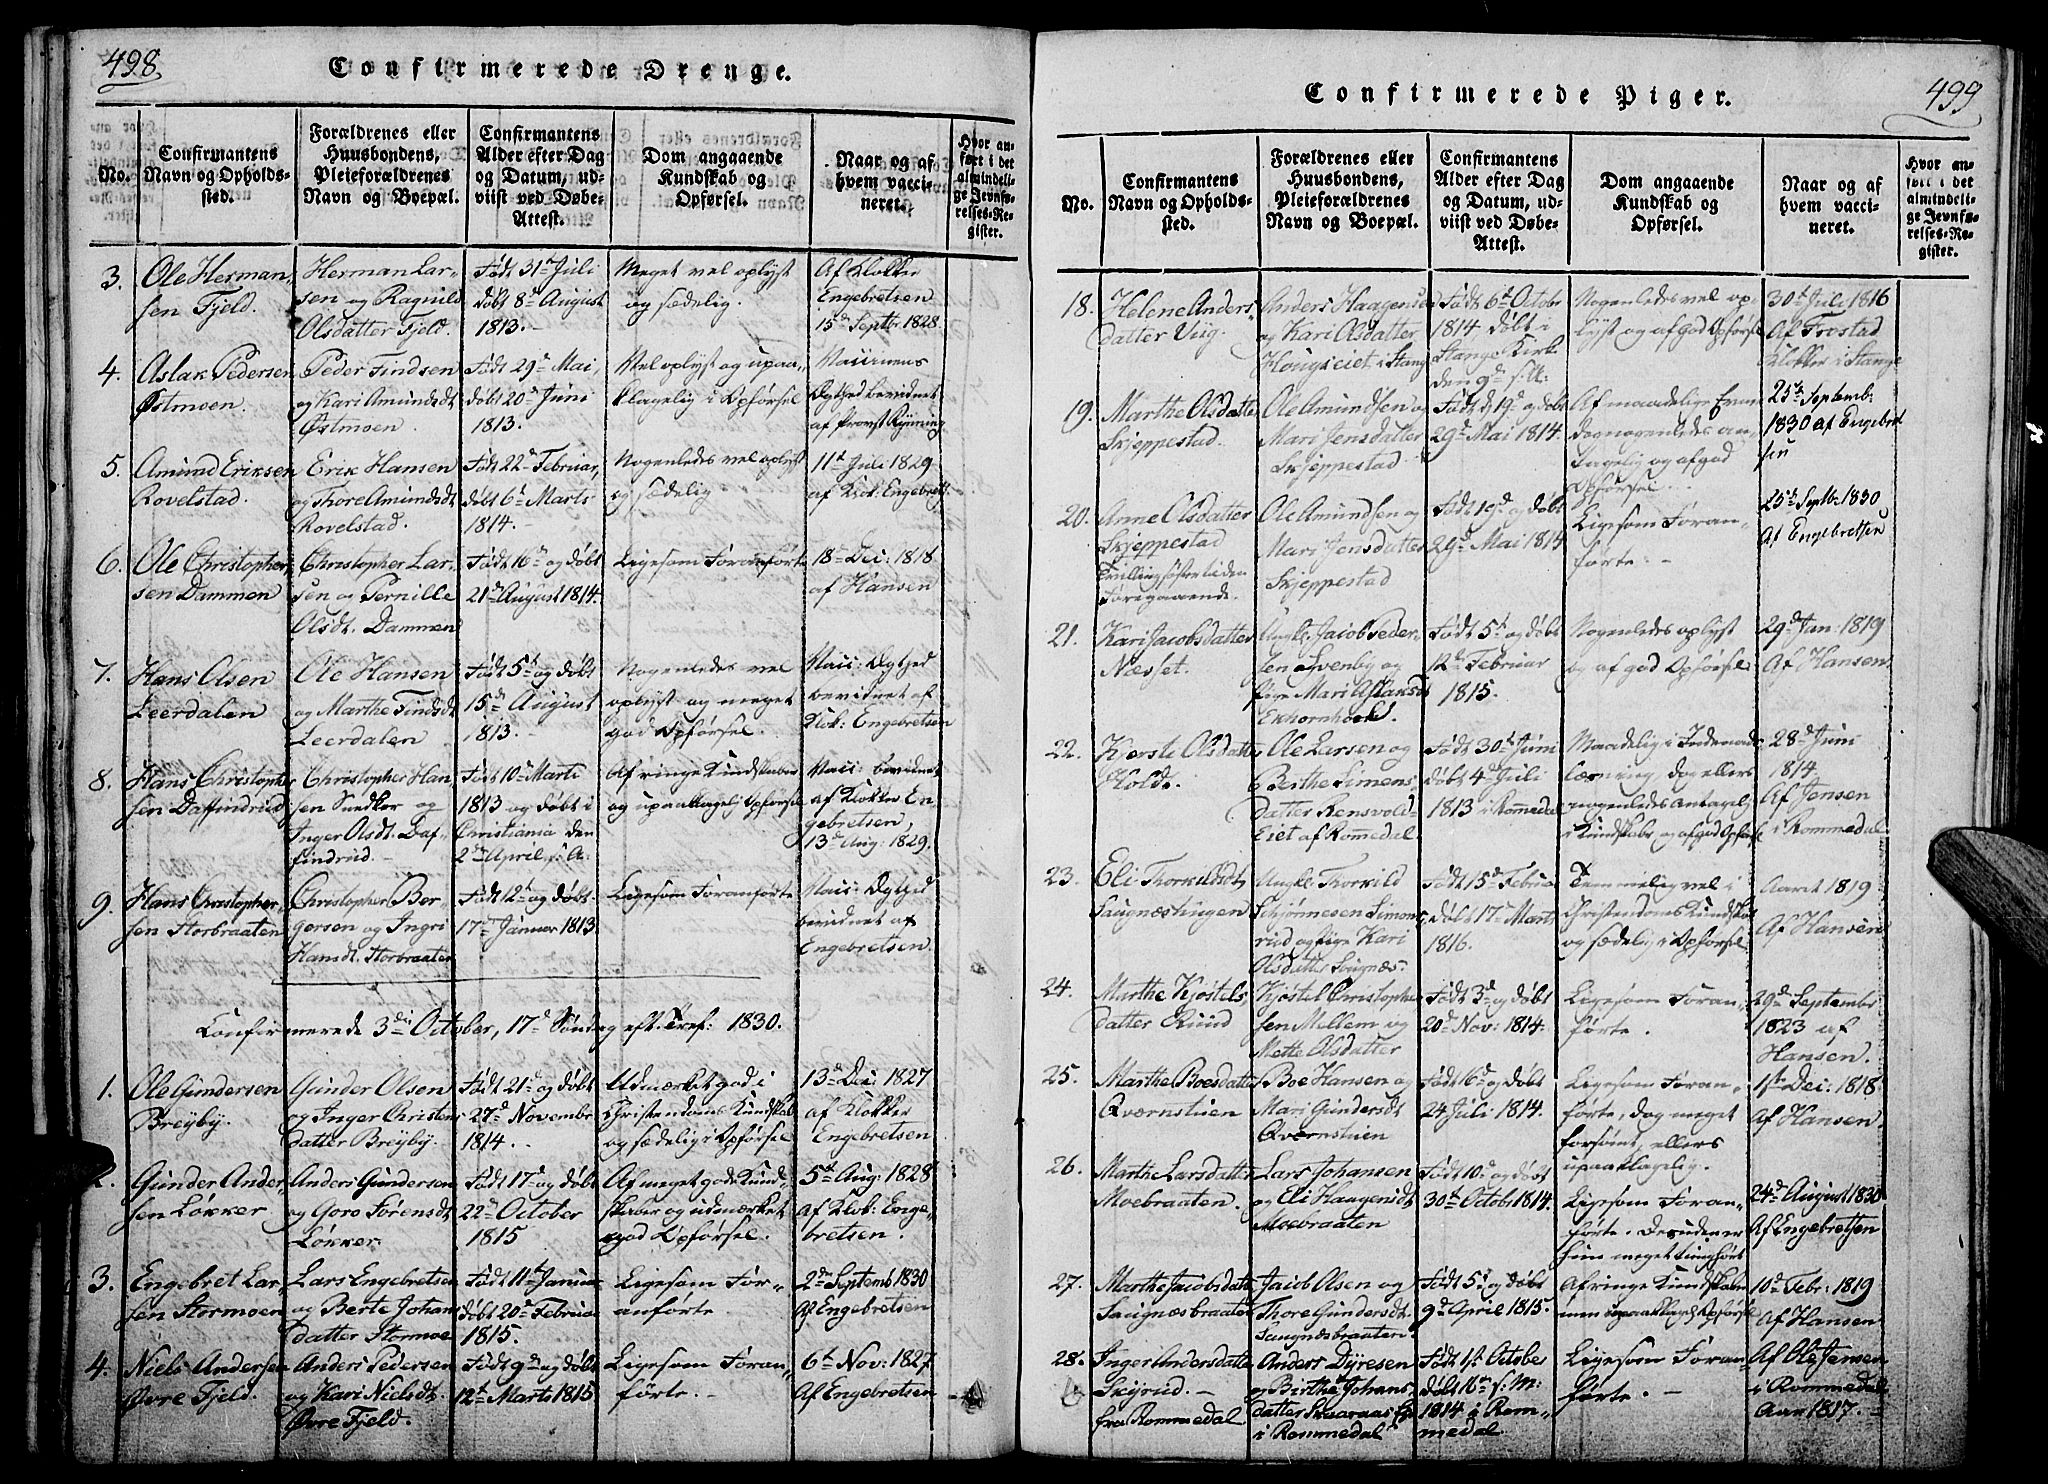 498.
Confirmerede Drenge.
No.
Confirmantens
Navn og Opholds-
sted.
Forældrenes eller
Huusbondens,
Pleieforældrenes
Navn og Boepæl.
Confirmantens
Alder efter Dag
og Datum, ud-
viist ved Døbe-
Attest.
Dom angaaende
Kundskab og
Opførsel.
Naar og af
hvem vacci-
neret.
Hvor an-
ført i det
almindeli-
ge Jevnfø-
relses-Re-
gister.
3.
Ole Herman-
sen Fjeld.
Herman Lar-
sen og Ragnild
Olsdatter Fjeld.
Født 31te Juli
døbt 8de August
1813.
Meget vel oplyst
og sædelig.
Af Klokker
Engebretsen
15d Septbr 1828.
4.
Aslak Pedersen
Østmoen.
Peder Findsen
og Kari Amundsdt
Østmoen.
Født 29de Mai,
døbt 20de Juni
1813.
Vel oplyst og upaa-
klagelig i Opførsel
Vaccinens
Ægthed bevidnet
af Provst Rynning
5.
Amund Eriksen
Rovelstad.
Erik Hansen
og Thore Amundsdt
Rovelstad.
Født 22de Februar,
døbt 6te Marts
1814.
Nogenledes vel oplyst
og sædelig
11te Juli 1829
af Klok: Engebrets.
6.
Ole Christopher-
sen Dammen
Christopher Lar-
sen og Pernille
Olsdt. Dammen
Født 16de og døbt
21de August 1814.
Ligesom Foranførte
18de Dec: 1818
af Hansen
7.
Hans Olsen
Leerdalen
Ole Hansen
og Marthe Findsdt
Leerdalen
Født 5te og døbt
15de August
1813.
Nogenledes vel
oplyst og meget
god Opførsel.
Vacc: Ægthed
bevidnet af
Klok: Engebretsen
8.
Hans Christopher
sen Daffindrud
Christopher Han-
sen Snedker og
Inger Olsdt. Daf-
findrud.
Født 10de Marti
1813 og døbt i
Christiania den
2den April s: A:
Af ringe Kundskaber
og upaaklagelig Opførsel
Vacc: bevidnet
af Klokker En-
gebretsen,
13de Aug: 1829.
9.
Hans Christopher-
sen Storbraaten
Christopher Bør-
gersen og Ingri
Hansdt. Storbraaten
Født 12te og døbt
17de Januar 1813
Ligesom Foranførte
Vacc: Ægthed
bevidnet af
Engebretsen.
Confirmerede 3die October, 17de Søndag eft: Tref: 1830.
1.
Ole Gundersen
Breyby.
Gunder Olsen
og Inger Christens
datter Breyby.
Født 21de og døbt
27de Novembr
1814.
Udmærket god i
Christendoms Kundskab
og sædelig i Opførsel
13de Dec: 1827
af Klokker
Engebretsen
2.
Gunder Ander-
sen Løkker
Anders Gundersen
og Goro Sørensdt
Løkker.
Født 17de og døbt
22de October
1815
Af meget gode Kund-
skaber og udmærket
god Opførsel.
5te Aug: 1828
af Klok: Enge-
bretsen.
3.
Engebret Lar-
sen Stormoen
Lars Engebretsen
og Berte Johans
datter Stormoe
Født 11te Januar
døbt 20de Februar
1815.
Ligesom For-
anførte
2den Septemb 1830
af Engebretsen
4.
Niels Andersen
Øvre Fjeld.
Anders Pedersen
og Kari Nielsdt
Øvre Fjeld.
Født 9de og døbt
12te Marts 1815
Ligesom Foran-
førte.
6te Nov: 1827
Af Engebretsen
499
Confirmerede Piger.
No.
Confirmantens
Navn og Opholds-
sted.
Forældrenes eller
Huusbondens,
Pleieforældrenes
Navn og Boepæl.
Confirmantens
Alder efter Dag
og Datum, ud-
viist ved Døbe-
Attest.
Dom angaaende
Kundskab og
Opførsel.
Naar og af
hvem vacci-
neret.
Hvor an-
ført i det
almindeli-
ge Jevnfø-
relses-Re-
gister.
18.
Helene Anders-
datter Viig.
Anders Haagensen
og Kari Olsdatter
Hougseiet i Stange
Født 6te Octobr
1814 døbt i
Stange Kirke
den 9de s: A:
Nogenledes vel op-
lyst og af god Opførsel
30te Juli 1816
Af Frostad
Klokker i Stange
19.
Marthe Olsdatter
Skjeppestad.
Ole Amundsen og
Mari Jensdatter
Skjeppestad
Født d 19de og døbt
29de Mai 1814.
Af maadelige Evner
dog nogenledes an-
tagelig og af god
Opførsel.
25de Septemb:
1830 af Engebret
sen
20.
Anne Olsdatter
Skjeppestad
Tvillingsøster til den
Foregaaende.
Ole Amundsen og
Mari Jensdatter
Skjeppestad
Født 19de og døbt
29de Mai 1814
Ligesom Foran-
førte.
25de Septb. 1830
Af Engebretsen
21.
Kari Jacobsdatter
Næsset.
Ungk. Jacob Peder-
sen Svenby og
Pige Mari Aslaksdt
Ekhornhoel.
Født 5te og døbt
12de Februar
1815.
Nogenledes oplyst
og af god Opførsel
29de Jan: 1819
Af Hansen.
22.
Kjerste Olsdatter
Hold.
Ole Larsen og
Berthe Simens-
datter Rensvold-
Eiet af Rommedal.
Født 30te Juni
døbt 4de Juli
1813 i Rommedal
Maadelig i Indenad-
læsning, dog ellers
nogenledes antagelig
i Kundskab, og af god Opførsel
28de Juni
1814
Af Jensen
i Rommedal
23.
Eli Thorkildsdt
Saugnæshugen
Ungk. Thorkild
Skjønnesen Simons
riud og Pige Kari
Olsdatter Sougnæs.
Født 15de Februar
døbt 17de Marts
1816.
Temmelig vel i
Christendoms Kundskab
og sædelig i Opførsel
Aaret 1819
Af Hansen
24.
Marthe Kjøstels-
datter Ruud
Kjøstel Christopher
sen Mellem og
Mette Olsdatter
Født 3de og døbt
20de Nov: 1814.
Ligesom Foran-
førte.
29de September
1823 af
Hansen.
25.
Marthe Boesdatter
Qværnstuen
Boe Hansen og
Mari Gundersdt
Qværnstuen
Født 16de og døbt
24 Juli 1814.
Ligesom Foran-
førte, dog meget
forsømt, ellers
upaaklagelig.
1ste Dec: 1818
Af Hansen.
26.
Marthe Larsdatter
Moebraaten.
Lars Johansen
og Eli Haagensdt
Moebraaten
Født 10de og døbt
30te Octobr 1814.
Ligesom Foran-
førte. Desuden er
hun meget tunghørt
24de August 1830
Af Engebretsen
27.
Marthe Jacobsdatter
Saugnæsbraaten
Jacob Olsen og
Thore Gundersdt.
Saugnæsbraaten
Født 5te og døbt
9de April 1815.
Af ringe Kundskaber
men upaaklagel: Opførsel
10de Febr: 1819
Af Hansen
28.
Inger Andersdatter
Skyrud.
fra Rommedal
Anders Dyresen
og Birthe Johans-
datter Skaarnæs Eje
i Rommedal
Født 1ste October
Døbt 16de s: M:
1814 i Rom-
medal.
Ligesom Foran-
førte.
Af Ole Jensen
i Rommedal
Aar 1817.